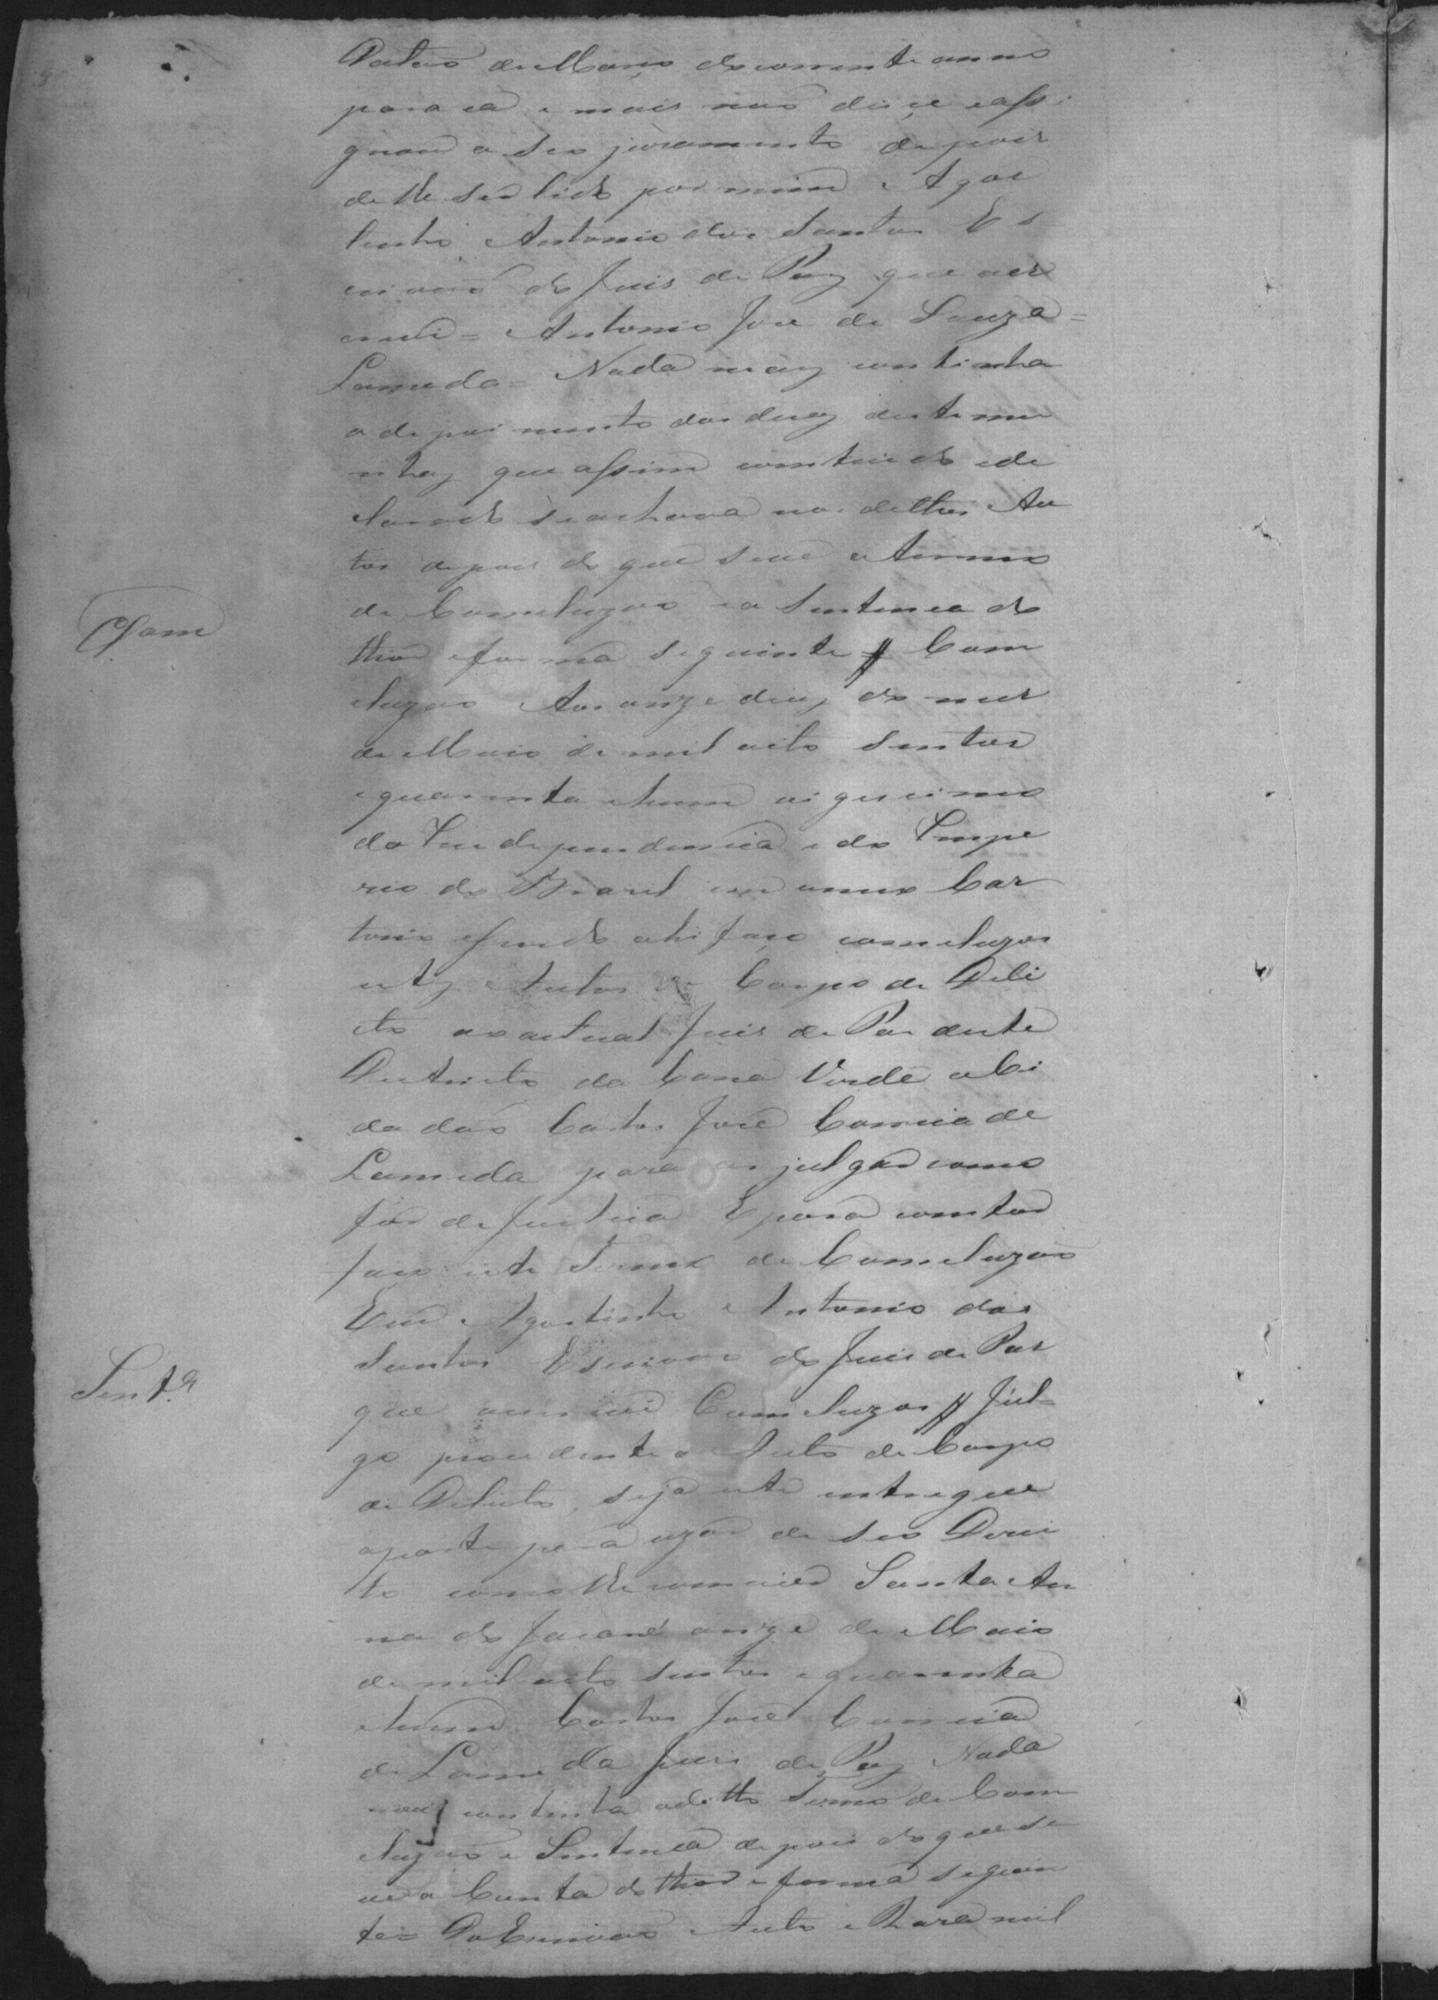 Quatro de Março do corrente anno
para cá e mais não disce e assi
gnou o seo juramento depois
de lhe ser lido por mim Agos
tinho Antonio dos Santos Es
crivaõ do Juis de Paz que o es
crevi = Antonio Jose de Souza =
Lameda = Nada mais continha
o depoimento das duas testemu
nhas que assim contiudo e de
clarado se achava nos dittos Au
tos depois do que se ve o Termo
de Comcluzaõ e a Sentenca do
Clam
thior e forma seguinte // Com
cluzaõ Aos onze dias do mes
de Maio de mil oito sentos
e quarenta e hum vigecimo
da Independencia e do Impe
rio do Brazil em o meo Car
torio e sendo ahi faço comcluzos
estes Autos de Corpo de Deli
cto ao actual Juis de Pas deste
Destricto da Cana Verde o Ci
dadaõ Carlos José Correia de
Lameda para os julgar como
for de Justica E para constar
faço este Termo de Comcluzaõ
Eu Agostinho Antonio dos
Santos Escrivaõ do Juis de Pas
Sent.ª
que o escrevi Comcluzos // Jul=
go procedente o Auto de Corpo
de Delicto, seja este entregue
a parte para uzar de seo Direi
to como lhe comvier Santa An
na do Jacaré onze de Maio
de mil oito sentos e quarenta
e hum Carlos José Correia
de Lameda Juis de Paz Nada
mais continha o ditto Termo de Com
cluzaõ e Sentenca depois do que se
ve a Conta do thior e forma seguin
te = Do Escrivaõ Auto e Raza mil